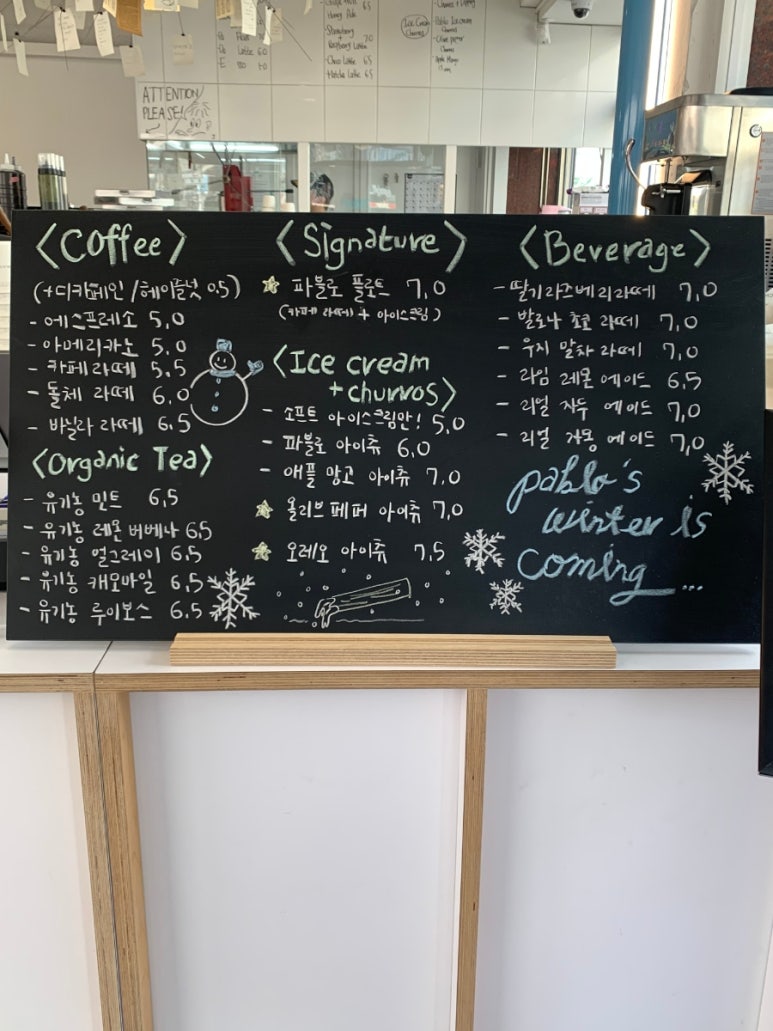 ATTENTION
PLEASE!
Raspberry Latte 70
Choco Latte 65
Matcha Latte 65
Ice Cream
Churros
<Coffee>
(+디카페인/헤이즐넛 0.5)
- 에스프레소 5.0
- 아메리카노 5.0
- 카페라떼 5.5
- 돌체 라떼 6.0
- 바닐라 라떼 6.5
<Organic Tea>
- 유기농 민트 6.5
- 유기농 레몬 버베나 6.5
- 유기농 얼그레이 6.5
- 유기농 캐모마일 6.5
- 유기농 루이보스 6.5
<Signature>
파블로 플로트 7.0
(카페 라떼 + 아이스크림)
<Ice cream
+churros>
- 소프트 아이스크림만! 5.0
- 파블로 아이츄 6.0
- 애플 망고 아이츄 7.0
올리브 페퍼 아이츄 7.0
오레오 아이츄 7.5
<Beverage>
- 딸기라즈베리라떼 7.0
- 발로나 초코 라떼 7.0
- 우지 말차 라떼 7.0
- 라임 레몬 에이드 6.5
- 리얼 자두 에이드 7.0
- 리얼 자몽 에이드 7.0
pablo's
winter is
coming...